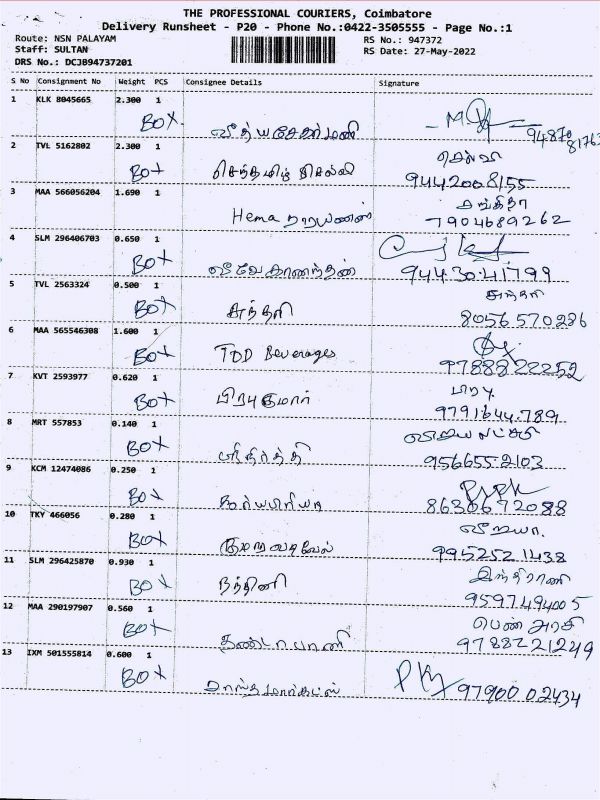 THE PROFESSIONAL COURIERS, Coimbatore
Delivery Runsheet - P20 - Phone No.:0422-3505555 - Page No.:1
Route: NSN PALAYAM RS No.: 947372
Staff: SULTAN RS Date: 27-May-2022
DRS No.: DCJB94737201
S No Consignment No Weight PCS Consignee Details Signature
1 KLK 8045665 2.300 1
BOX வித்யசேகர்மணி 94870 81763
2 TVL 5162802 2.300 1 செல்வி
BOX செந்தமிழ் செல்வி 9442008155
3 MAA 566056204 1.690 1
Hema நாராயணன் 7904689262
4 SLM 296406703 0.650 1
BOX விவேகானந்தன் 94430.41799
5 TVL 2563324 0.500 1
BOX 8056 570286
6 MAA 565546308 1.600 1
BOX TDD Beverages 97888 22252
7 KVT 2593977 0.620 1 பிரபு
BOX பிரபுகுமார் 9791644789
8 MRT 557853 0.140 1 விஜயலட்சுமி
BOX 9566552103
9 KCM 12474086 0.250 1
BOX 8630672088
10 TKY 466056 0.280 1 விஜயா.
BOX குமரவடிவேல் 9952521438
11 SLM 296425870 0.930 1 இந்திராணி
BOX நந்தினி 9597494005
12 MAA 290197907 0.560 1 பெண் அரசி
BOX தண்டாயபாணி 9788221249
13 IXM 501555814 0.600 1
BOX 97900 02434